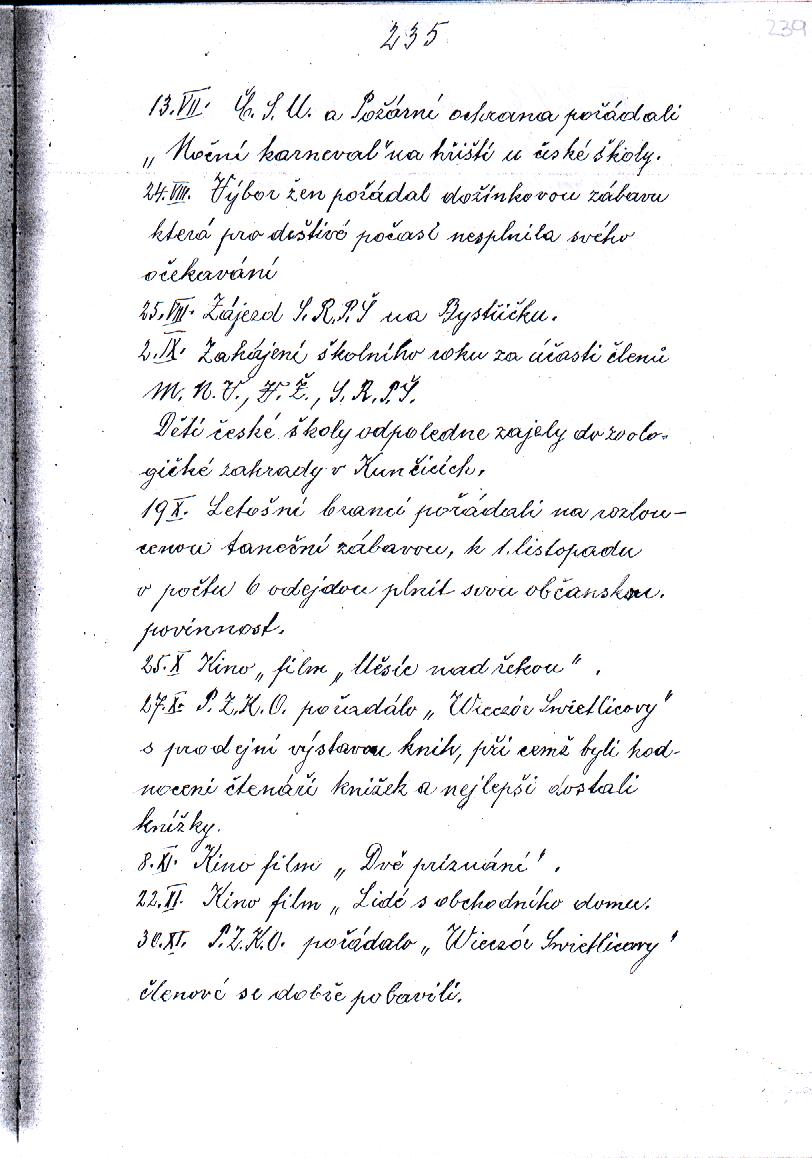 235
239
13.VII. Č. S. M. a Požární ochrana pořádali
„Noční karneval" na hřišti u české školy.
24.VIII. Výbor žen pořádal dožínkovou zábavu
která pro deštivé počasí nesplnila svého
očekavání
25.VIII. Zájezd S.R.P.Š na Bystřičku.
2.IX. Zahájení školního roku za účasti členů
M. N. V., V. Ž., S. R. P. Š.
Děti české školy odpoledne zajely do zoolo-
gičké zahrady v Kunčicích.
19 X. Letošní branci pořádali na rozlou-
cenou taneční zábavou, k 1. listopadu
v počtu 6 odejdou plnit svou občanskou.
povinnost.
25.X Kino „film „Měsíc nad řekou".
27.X. P.Z.K.O. pořadálo „Wieczór Swietlicovy"
s prodejní výstavou knih, při cemž byli hod-
noceni čtenáři knížek a nejlepši dostali
knížky.
8.XI. Kino film „Dvě príznání".
22.XI. Kino film „Lidé s obchodního domu.
30.XI. P.Z.K.O. pořádalo „Wieczór Swietlicovy"
členové se dobře pobavili.